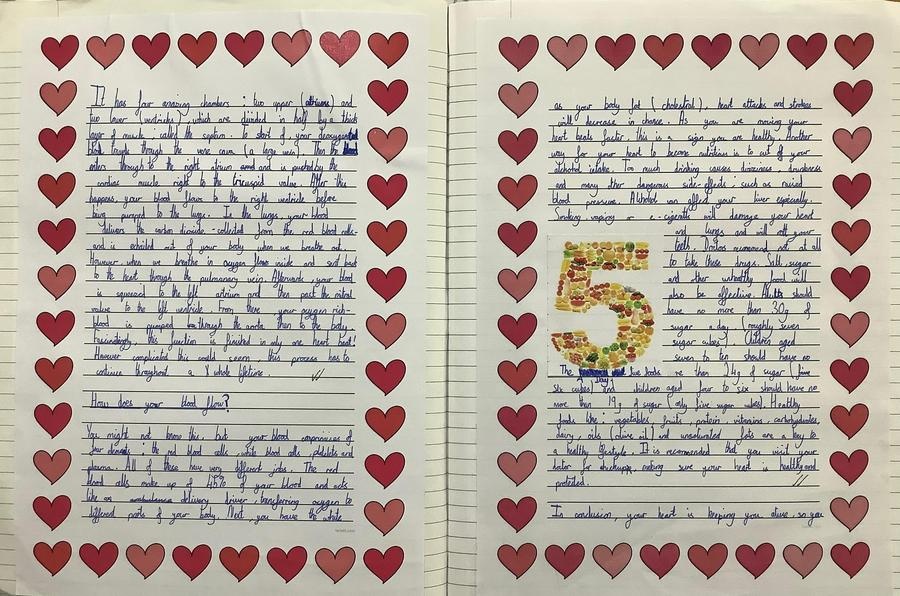 It has four amazing chambers : two upper (atriums) and
two lower (ventricles) , which are divided in half by a thick
layer of muscle , called the septum . To start of , your deoxygenated
blood travels through the vena cava (a large vein) . Then
enters through to the right atrium and is pushed by the
cardiac muscle right to the tricuspid valve . After this
happens, your blood flows to the right ventricle before
being pumped to the lungs . In the lungs, your blood
delivers the carbon dioxide - collected from the red blood cells -
and is exhaled out of your body when we breathe out .
However, when we breathe in oxygen flows inside and sent back
to the heart through the pulmonary vein. Afterwards , your blood
is squeezed to the left atrium and then past the mitral
valve to the left ventricle . From there , your oxygen rich-
blood is pumped through the aorta then to the body.
Fascinatingly, this function is finished in only one heart beat!
However complicated this could seem , this process has to
continue throughout a whole lifetime .
How does your blood flow?
You might not know this, but your blood comprimises of
four : the red blood cells , white blood cells , platelets and
plasma . All of these have very different jobs . The red
blood cells make up of 45% of your blood and acts
like an ambulance delivery driver , transferring oxygen to
different parts of your body. Next , you have the white
twinkl.com
as your body fat ( cholestral ), heart attacks and strokes
will decrease in chance . As you are moving your
heart beats faster , this is a sign you are healthy. Another
way for your heart to become nutrition is to cut off your
alchohol intake . Too much drinking causes dizziness , drunkness
and many other dangerous side-effects ; such as raised
blood pressure . Alchohol can affect your liver especially.
Smoking, vaping or e-cigarette will damage your heart
and lungs and will rott your
teeth . Doctors recommend not at all
to take these drugs . Salt , sugar
and other unhealthy food will
also be effective . Adults should
have no more than 30g of
sugar a day ( roughly seven
sugar cubes ) . Children aged
seven to ten should have no
The five foods
Day
more than 24g of sugar ( five
six cubes ) and children aged four to six should have no
more than 19g of sugar ( only five sugar cubes ) . Healthy
foods like : vegetables , fruits , protein , vitamins , carbohydrates,
dairy , oils ( olive oil ) and unsaturated fats are a key to
a healthy lifestyle . It is recommended that you visit your
doctor for checkups , making sure your heart is healthy and
protected .
In conclusion , your heart is keeping you alive , so you